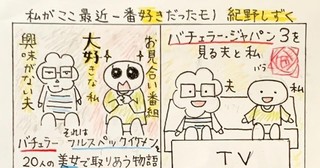 私がここ最近一番好きだったモノ 紀野しずく
お見合い番組
大好きな私
興味がない夫
それは
バチェラー フルスペックイケメンを
20人の美女で取りあう物語
バチェラー・ジャパン3を
見る夫と私
バラ
夫
私
TV